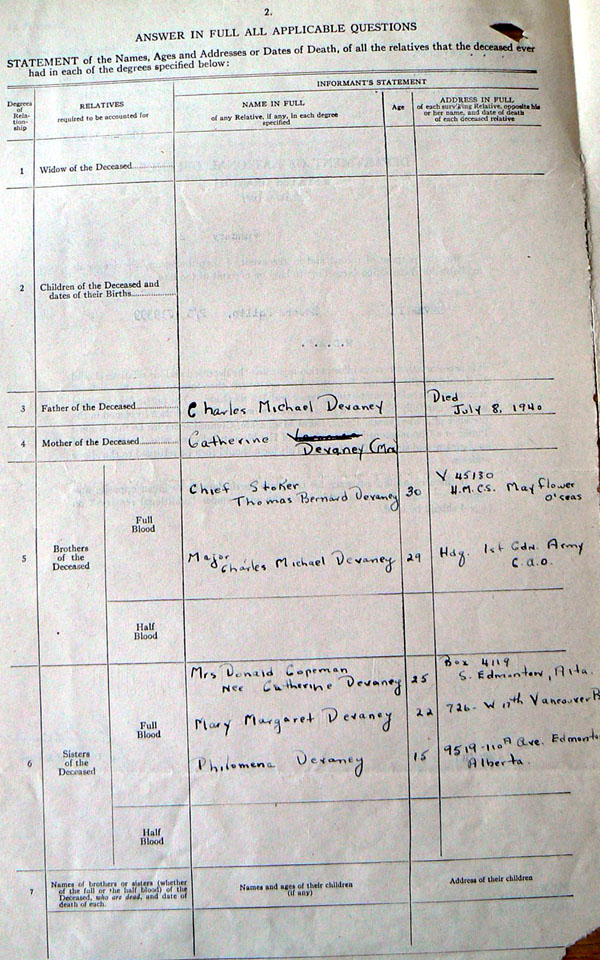 2.
ANSWER IN FULL ALL APPLICABLE QUESTIONS
STATEMENT of the Names, Ages and Addresses or Dates of Death, of all the relatives that the deceased ever
had in each of the degrees specified below:
INFORMANT'S STATEMENT
Degrees
of
Rela-
tion-
ship
RELATIVES
required to be accounted for
NAME IN FULL
of any Relative, if any, in each degree
specified
Age
ADDRESS IN FULL
of each surviving Relative, opposite his
or her name, and date of death
of each deceased relative
1 Widow of the Deceased
2 Children of the Deceased and
dates of their Births
3 Father of the Deceased Charles Michael Devaney Died
July 8, 1940
4 Mother of the Deceased Catherine
Devaney (Mrs
5 Brothers
of the
Deceased
Full
Blood
Chief Stoker
Thomas Bernard Devaney 30
V 45130
H.M.C.S. Mayflower
O'seas
Major
Charles Michael Devaney 29
Hdq. 1st Cdn. Army
C.A.O.
Half
Blood
6 Sisters
of the
Deceased
Full
Blood
Mrs Donald Copeman
Nee Catherine Devaney 25
Box 4119
S. Edmonton, Alta.
Mary Margaret Devaney 22 726- W 17th Vancouver B
Philomena Devaney 15 9519-110A Ave. Edmonto
Alberta.
Half
Blood
7 Names of brothers or sisters (whether
of the full or the half blood) of the
Deceased, who are dead, and date of
death of each.
Names and ages of their children
(if any)
Address of their children